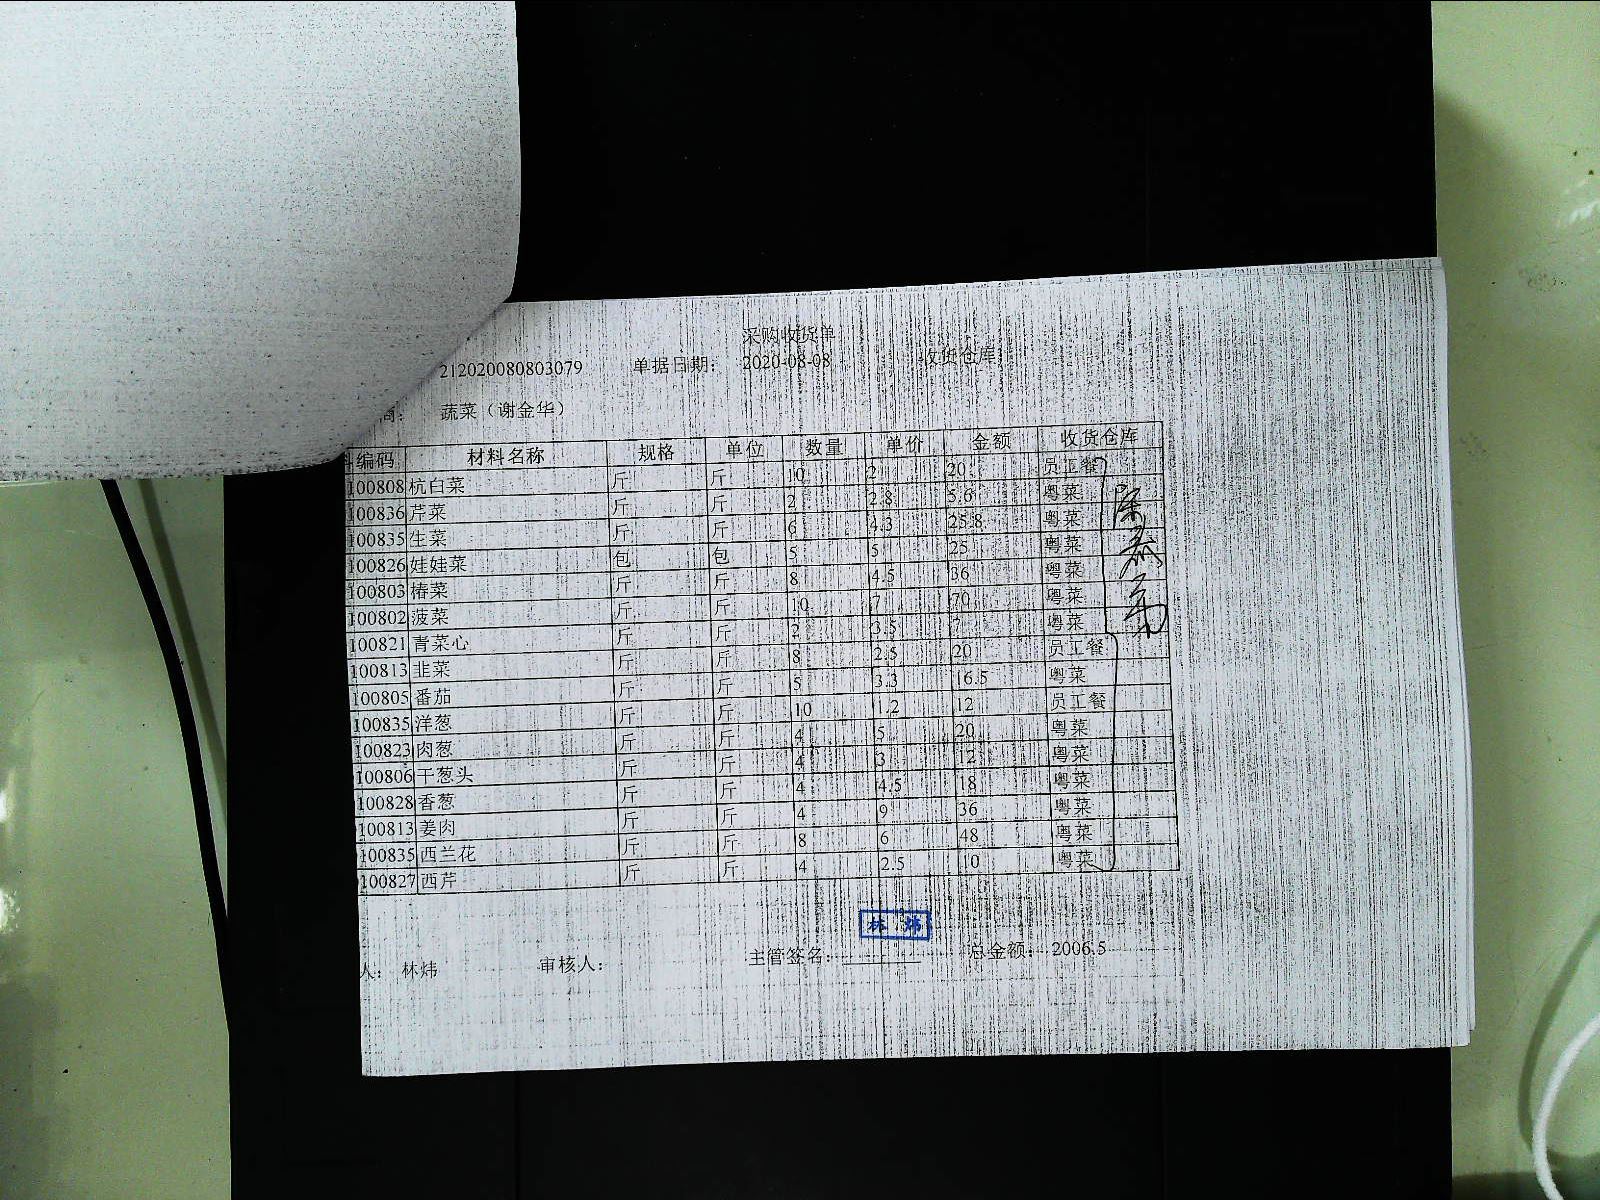 采购收货单
212020080803079 单据日期： 2020-08-08 收货仓库
商： 蔬菜（谢金华）
编码 材料名称 规格 单位 数量 单价 金额 收货仓库
100808 杭白菜 斤 斤 10 2 20 员工餐
100836 芹菜 斤 斤 2 2.8 5.6 粤菜
100835 生菜 斤 斤 6 4.3 25.8 粤菜
100826 娃娃菜 包 包 5 5 25 粤菜
100803 椿菜 斤 斤 8 4.5 36 粤菜
100802 菠菜 斤 斤 10 7 70 粤菜
100821 青菜心 斤 斤 2 3.5 7 粤菜
100813 韭菜 斤 斤 8 2.5 20 员工餐
100805 番茄 斤 斤 5 3.3 16.5 粤菜
100835 洋葱 斤 斤 10 1.2 12 员工餐
100823 肉葱 斤 斤 4 5 20 粤菜
100806 干葱头 斤 斤 4 3 12 粤菜
100828 香葱 斤 斤 4 4.5 18 粤菜
100813 姜肉 斤 斤 4 9 36 粤菜
100835 西兰花 斤 斤 8 6 48 粤菜
100827 西芹 斤 斤 4 2.5 10 粤菜
林 炜
人： 林炜 审核人： 主管签名： 总金额： 2006.5